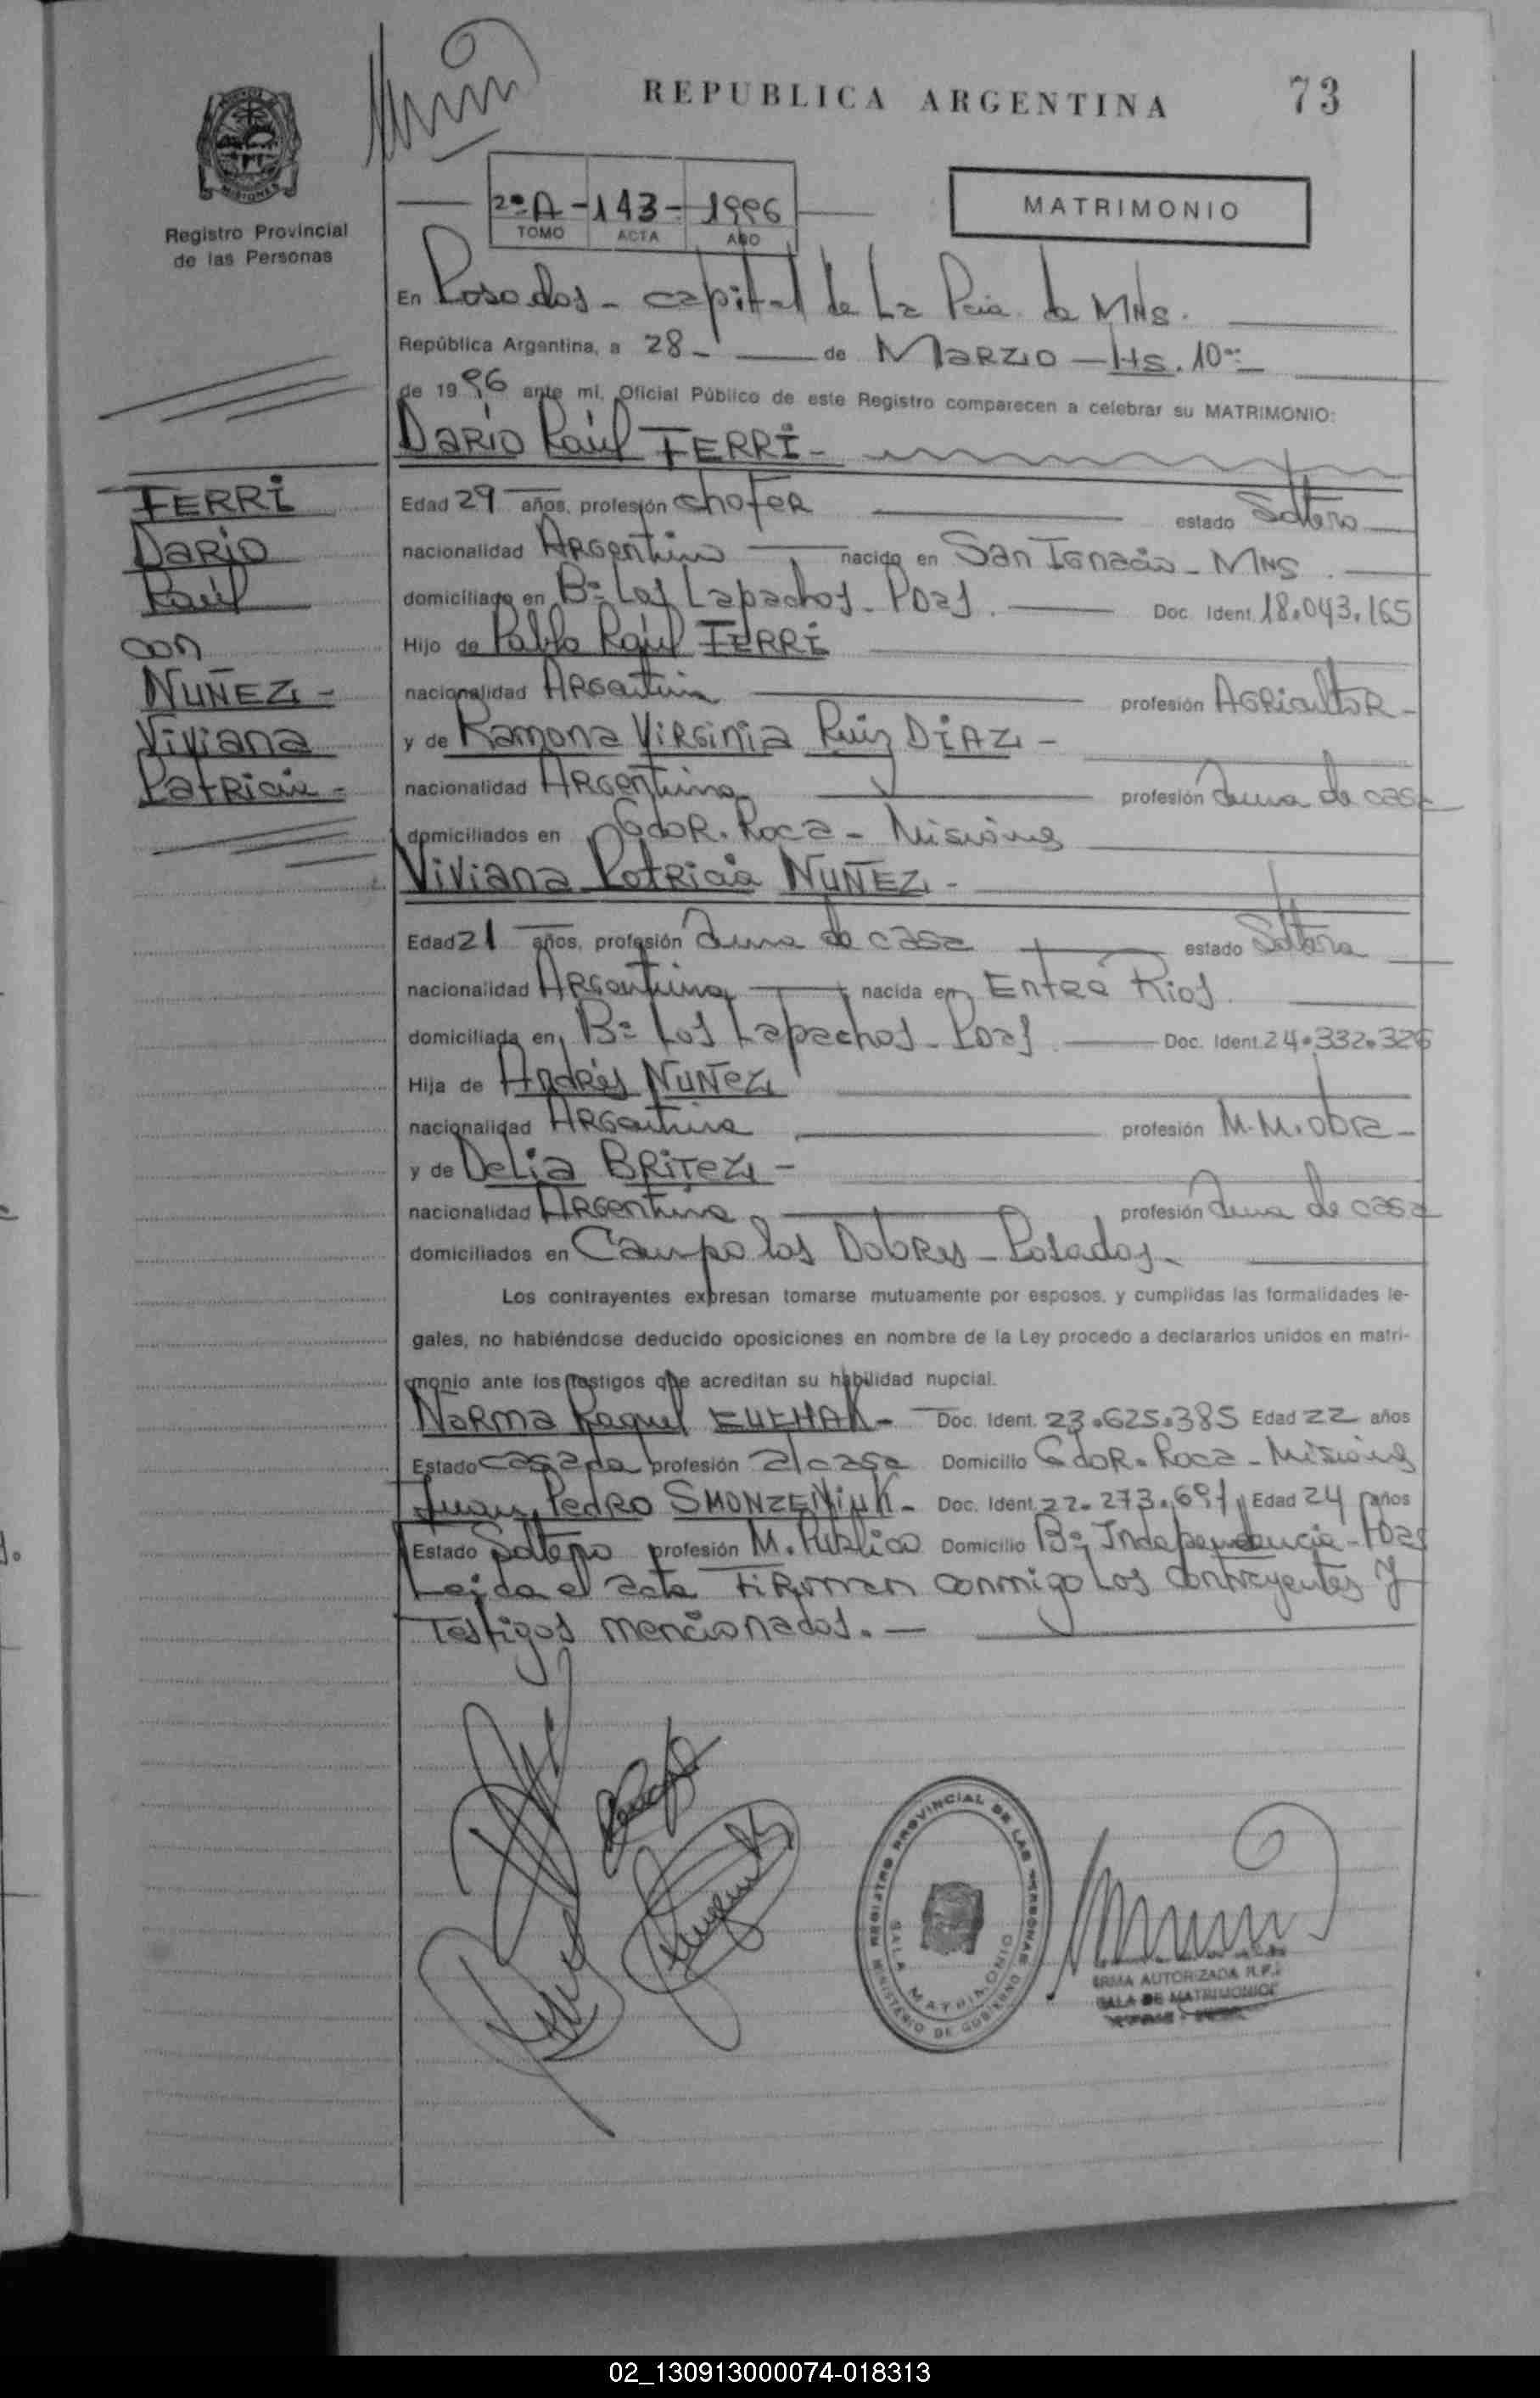 REPUBLICA ARGENTINA
73
MISIONES
Registro Provincial
de las Personas
2º A - 143 - 1996
TOMO ACTA AÑO
MATRIMONIO
En Posadas - capital de La Pcia. de MNS.
República Argentina, a 28 - de MARZO - Hs. 10
de 1996 ante mí, Oficial Público de este Registro comparecen a celebrar su MATRIMONIO:
DARIO Raúl FERRI -
FERRI
DARIO
Raúl
con
NUÑEZ -
Viviana
Patricia -
Edad 29 años, profesión chofer estado Soltero
nacionalidad Argentino nacido en San Ignacio - MNS.
domiciliado en Bº Los Lapachos - Pdas. Doc. Ident. 18.043.165
Hijo de Pablo Raúl FERRI
nacionalidad Argentina profesión Agricultor -
y de Ramona Virginia Ruiz DIAZ -
nacionalidad Argentina profesión ama de casa
domiciliados en Gdor. Roca - Misiones
Viviana Patricia NUÑEZ -
Edad 21 años, profesión ama de casa estado Soltera
nacionalidad Argentina nacida en Entre Rios
domiciliada en Bº Los Lapachos - Pdas. Doc. Ident. 24.332.326
Hija de Andrés NUÑEZ
nacionalidad Argentina profesión M.M. obra -
y de Delia BRITEZ -
nacionalidad Argentina profesión ama de casa
domiciliados en Campo las Dolores - Posadas -
Los contrayentes expresan tomarse mutuamente por esposos, y cumplidas las formalidades le-
gales, no habiéndose deducido oposiciones en nombre de la Ley procedo a declararlos unidos en matri-
monio ante los testigos que acreditan su habilidad nupcial.
Norma Raquel - Doc. Ident. 23.625.385 Edad 22 años
Estado casada profesión a/casa Domicilio Gdor. Roca - Misiones
Juan Pedro SMONZENIUK - Doc. Ident. 22.273.691 Edad 24 años
Estado Soltero profesión M. Público Domicilio Bº Independencia - Pdas
Leida el acta FIRMAN conmigo Los contrayentes y
Testigos mencionados. -
REGISTRO PROVINCIAL DE LAS PERSONAS
MINISTERIO DE GOBIERNO
SALA MATRIMONIO
FIRMA AUTORIZADA R.P.P.
SALA DE MATRIMONIOS
02_130913000074-018313